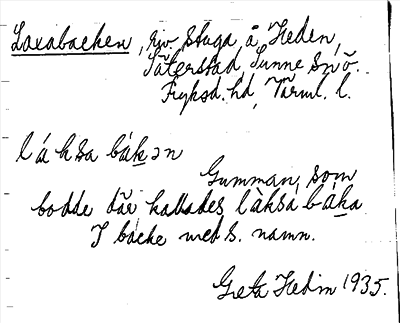 Laxabacken, riv. stuga å Heden,
Säterstad Sunne sn ö.
Fryksd. hd, Värml. l.
láksa bákən
Gumman, som
bodde där kallades làksa báka
I backe med s. namn.
Greta Hedin 1935.